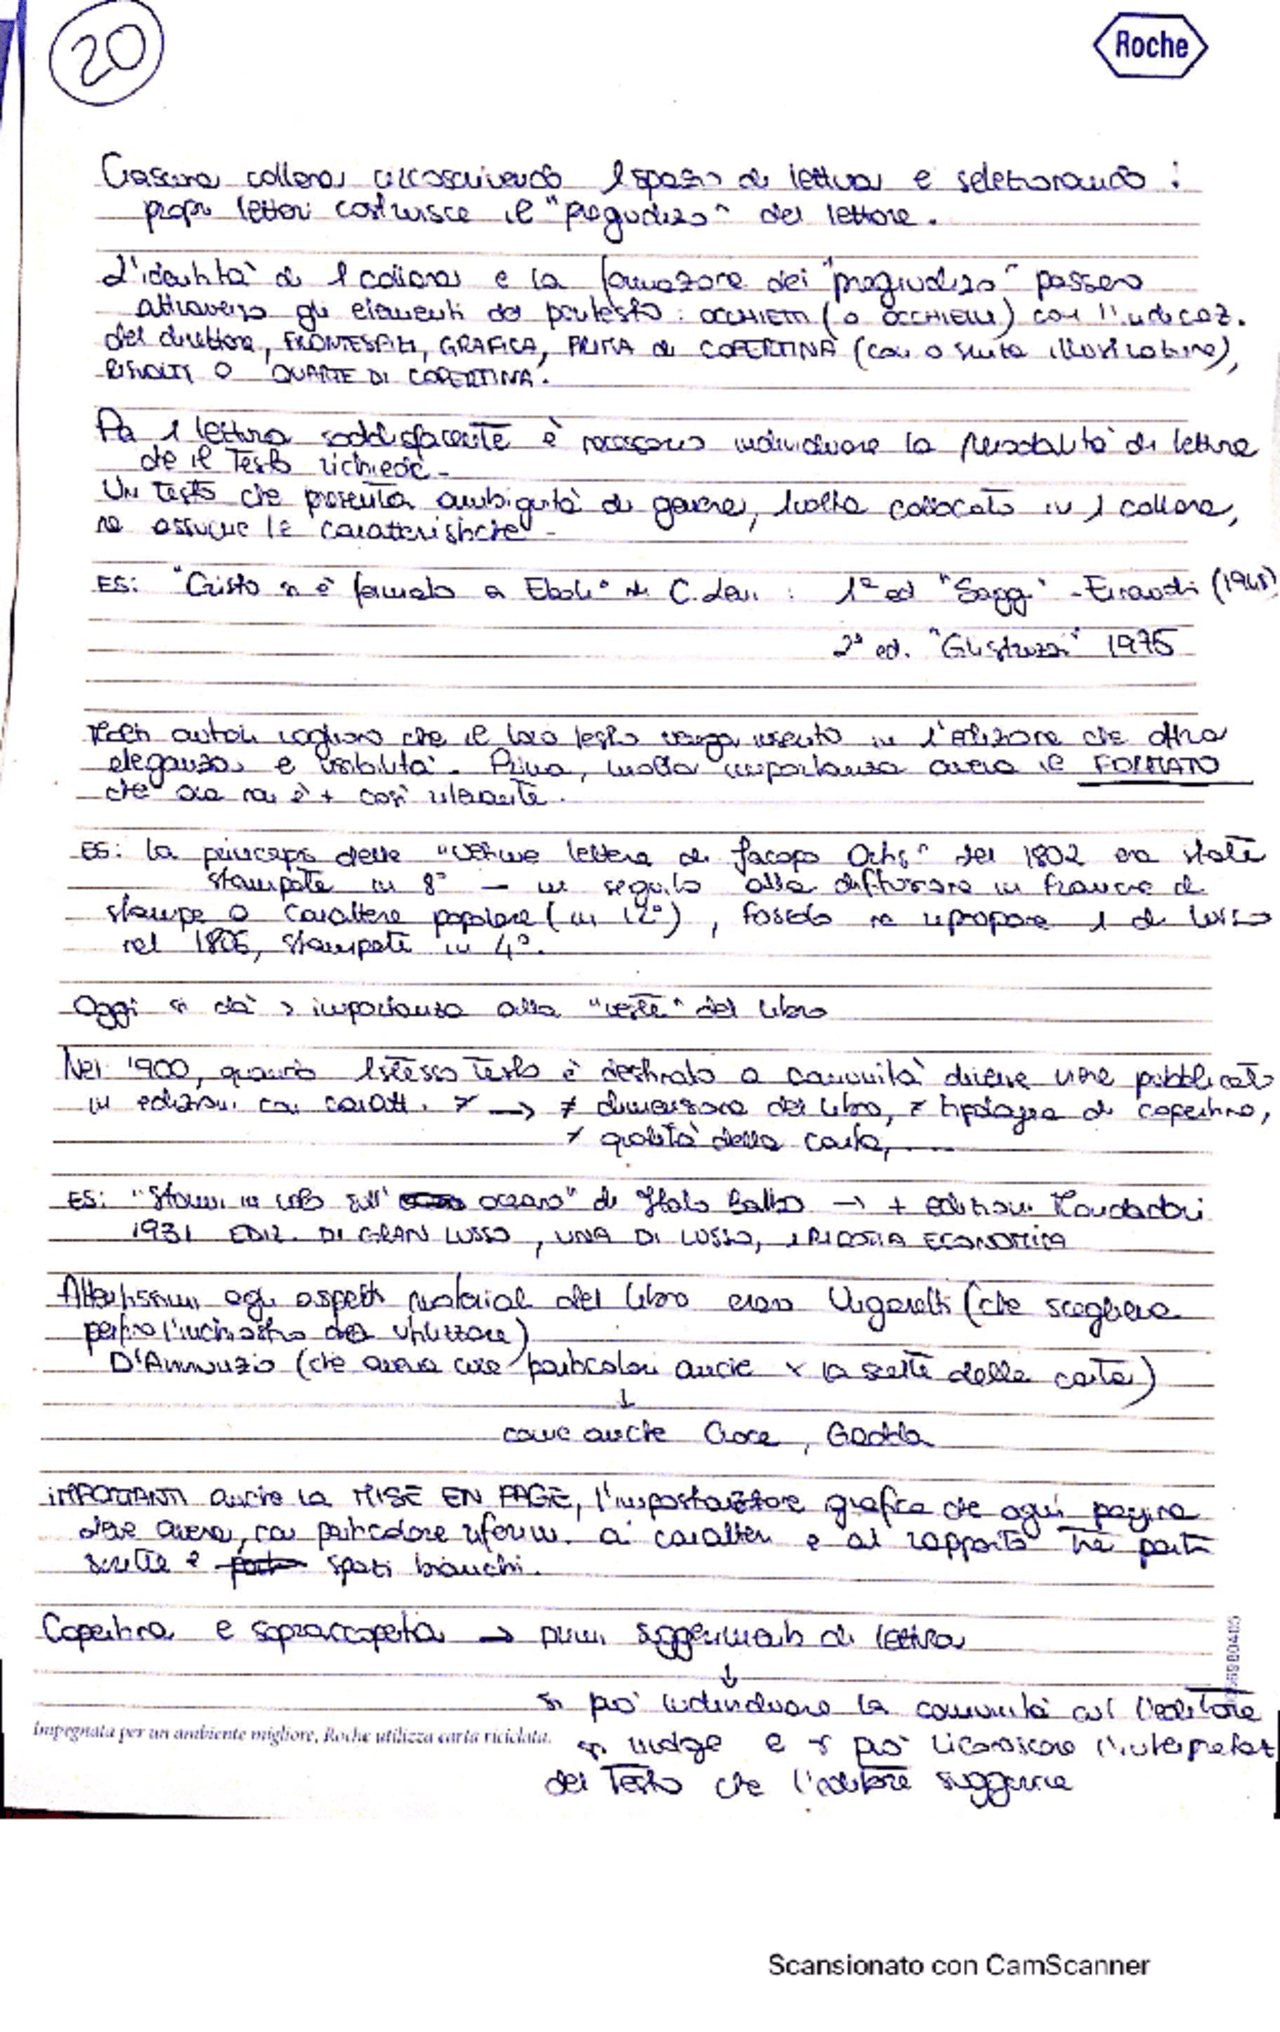 20
Roche
Ciascuna collana circoscrivendo 1 spazio di lettura e selezionando i
propri lettori costruisce il "pregiudizio" del lettore.
L'identità di 1 collana e la formazione del "pregiudizio" passano
attraverso gli elementi del paratesto: OCCHIETTI (o OCCHIELLI) con l'indicaz.
del direttore, FRONTESPIZI, GRAFICA, PRIMA di COPERTINA (con o senza illustrazione),
RISVOLTI O QUARTE DI COPERTINA.
Per 1 lettura soddisfacente è necessario individuare la modalità di lettura
che il testo richiede.
Un testo che presenta ambiguità di genere, 1 volta collocato in 1 collana,
ne assume le caratteristiche.
ES: "Cristo si è fermato a Eboli" di C. Levi : 1ª ed "Saggi" - Einaudi (1945)
2ª ed. "Gli struzzi" 1975
Molti autori vogliono che il loro testo venga inserito in 1 edizione che offra
eleganza e visibilità. Prima, molta importanza aveva il FORMATO
che ora non è + così rilevante.
ES: la princeps delle "Ultime lettere di Jacopo Ortis" del 1802 era stata
stampata in 8° - in seguito alla diffusione in Francia di
stampe a carattere popolare (in 12°), Foscolo ne ripropone 1 di lusso
nel 1806, stampata in 4°.
Oggi si dà > importanza alla "veste" del libro
Nel 1900, quando 1 stesso testo è destinato a comunità diverse viene pubblicato
in edizioni con caratt. ≠ → ≠ dimensione del libro, ≠ tipologia di copertina,
≠ qualità della carta, ....
ES: "Stormi in volo sull' oceano" di Italo Balbo → + edizioni Mondadori
1931 EDIZ. DI GRAN LUSSO, UNA DI LUSSO, 1 RIDOTTA ECONOMICA
Attentissimi agli aspetti materiali del libro erano Ungaretti (che sceglieva
perfino l'inchiostro da utilizzare)
D'Annunzio (che aveva cure particolari anche x la scelta della carta)
↓
come anche Croce, Gadda
IMPORTANTI anche la MISE EN PAGE, l'impostazione grafica che ogni pagina
deve avere, con particolare riferim. ai caratteri e al rapporto tra parti
scritte e spazi bianchi.
Copertina e sopraccoperta → primi suggerimenti di lettura
↓
si può individuare la comunità cui l'editore
si rivolge e si può riconoscere l'interpretaz
del testo che l'editore suggerisce
Impegnata per un ambiente migliore, Roche utilizza carta riciclata.
Scansionato con CamScanner